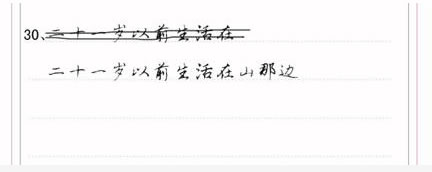 30、二十一岁以前生活在
二十一岁以前生活在山那边